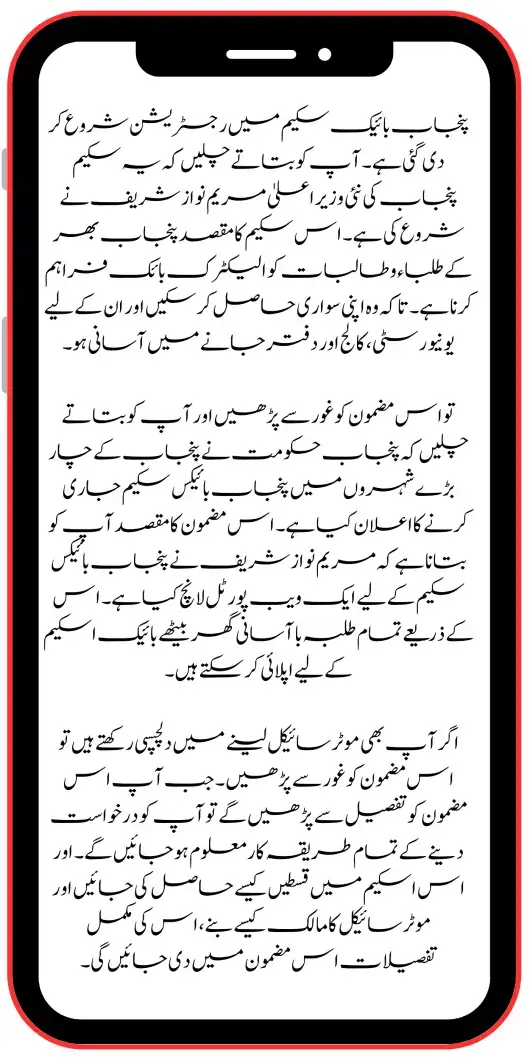 پنجاب بائیک سکیم میں رجسٹریشن شروع کر
دی گئی ہے۔ آپ کو بتاتے چلیں کہ یہ سکیم
پنجاب کی نئی وزیر اعلیٰ مریم نواز شریف نے
شروع کی ہے۔ اس سکیم کا مقصد پنجاب بھر
کے طلباء و طالبات کو الیکٹرک بائک فراہم
کرنا ہے۔ تاکہ وہ اپنی سواری حاصل کر سکیں اور ان کے لیے
یونیورسٹی، کالج اور دفتر جانے میں آسانی ہو۔
تو اس مضمون کو غور سے پڑھیں اور آپ کو بتاتے
چلیں کہ پنجاب حکومت نے پنجاب کے چار
بڑے شہروں میں پنجاب بائیکس سکیم جاری
کرنے کا اعلان کیا ہے۔ اس مضمون کا مقصد آپ کو
بتانا ہے کہ مریم نواز شریف نے پنجاب بائیکس
سکیم کے لیے ایک ویب پورٹل لانچ کیا ہے۔ اس
کے ذریعے تمام طلبہ باآسانی گھر بیٹھے بائیک اسکیم
کے لیے اپلائی کر سکتے ہیں۔
اگر آپ بھی موٹر سائیکل لینے میں دلچسپی رکھتے ہیں تو
اس مضمون کو غور سے پڑھیں۔ جب آپ اس
مضمون کو تفصیل سے پڑھیں گے تو آپ کو درخواست
دینے کے تمام طریقہ کار معلوم ہو جائیں گے۔ اور
اس اسکیم میں قسطیں کیسے حاصل کی جائیں اور
موٹر سائیکل کا مالک کیسے بنے، اس کی مکمل
تفصیلات اس مضمون میں دی جائیں گی۔